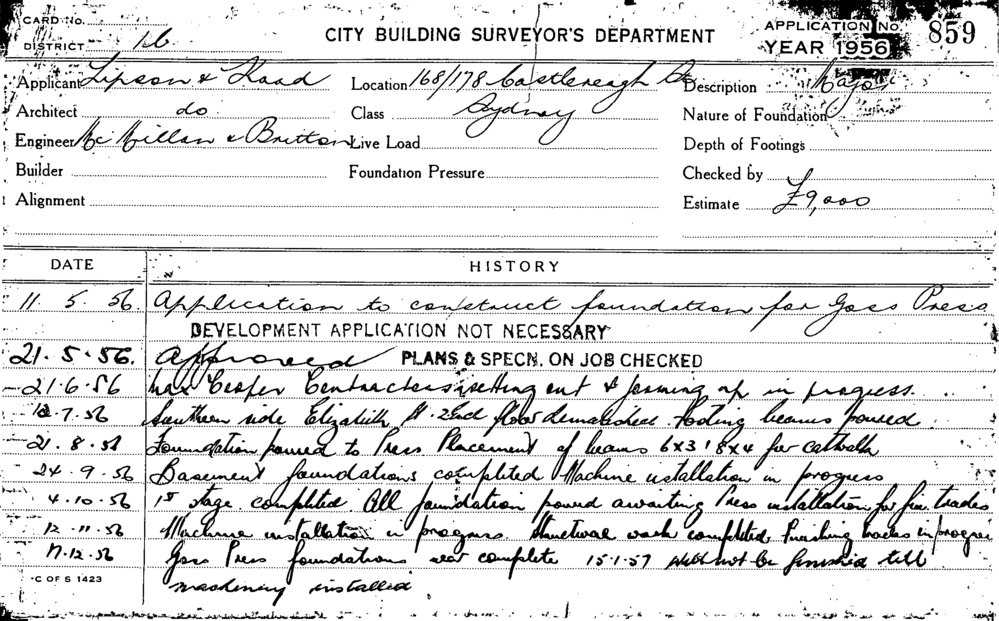 CARD No.
DISTRICT 16
CITY BUILDING SURVEYOR'S DEPARTMENT
APPLICATION No 859
YEAR 1956
Applicant Lipson & Kaad
Location 168/178 Castlereagh St
Description Major
Architect do
Class Sydney
Nature of Foundation
Engineer McMillan & Britton
Live Load
Depth of Footings
Builder
Foundation Pressure
Checked by
Alignment
Estimate £9,000
DATE
HISTORY
11. 5. 56 Application to construct foundation for Goss Press
DEVELOPMENT APPLICATION NOT NECESSARY
21.5.56. Approved PLANS & SPECN. ON JOB CHECKED
21.6.56 Max Cooper Contractors setting out & forming up in progress.
12.7.56 Southern side Elizabeth St. 2nd floor demolished footing beams poured
21.8.56 Foundation poured to Press Placement of beams 6x3 8x4 for catwalk
24.9.56 Basement foundations completed Machine installation in progress
4.10.56 1st stage completed All foundation poured awaiting Press installation for fin trades
12.11.56 Machine installation in progress Structural work completed Finishing trades in progress
17.12.56 Goss Press foundations complete 15.1.57 Will not be finished till
machinery installed
C OF S 1423